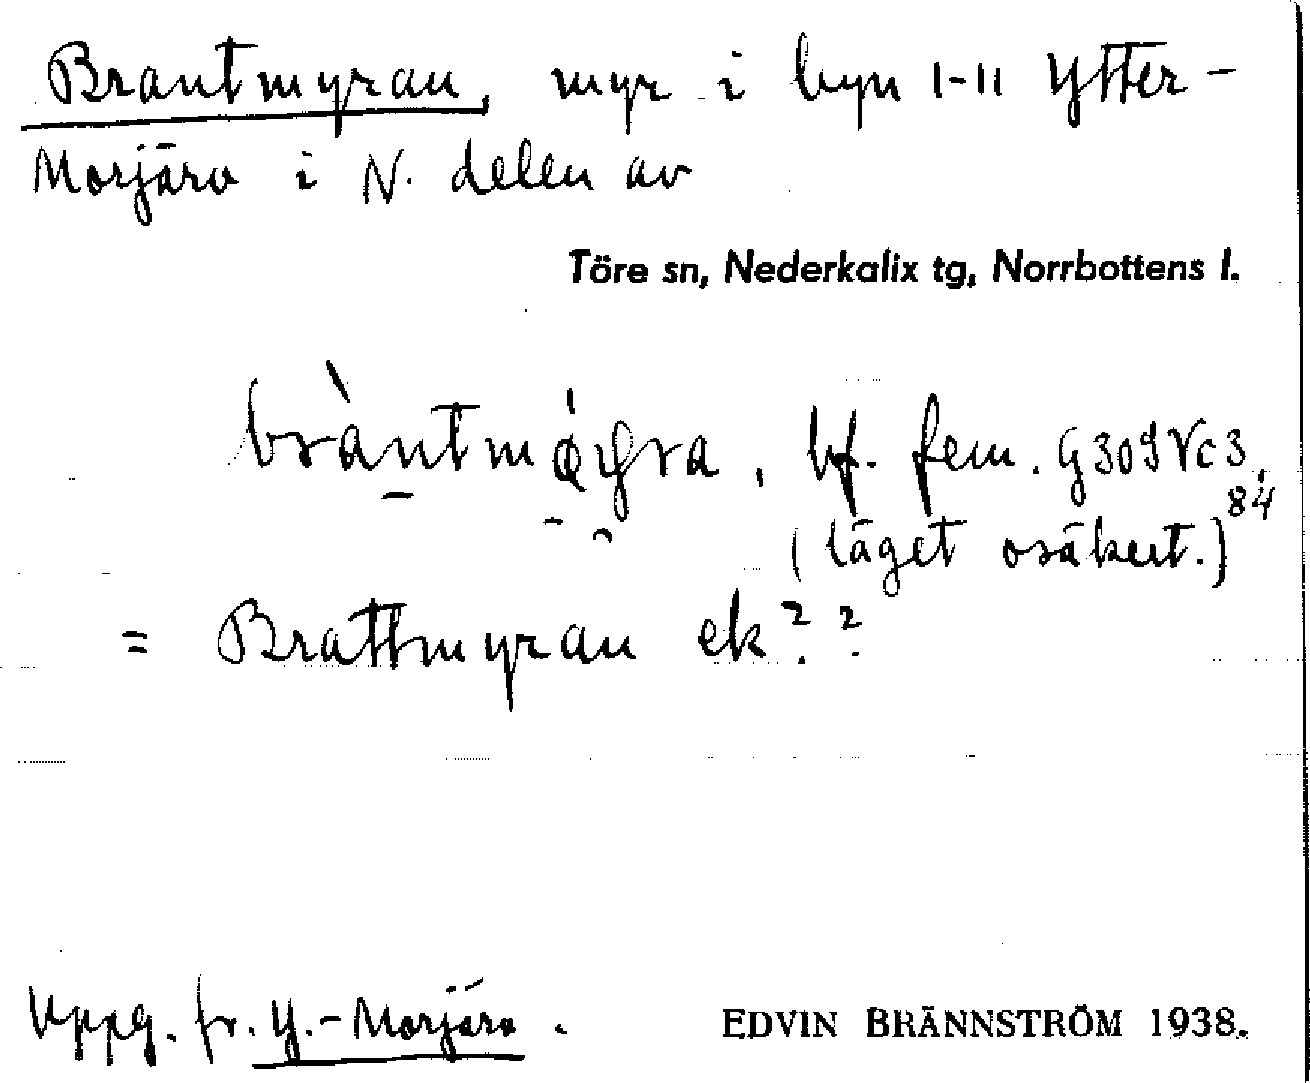 Brantmyran, myr i byn 1-11 Ytter-
Morjärv i N. delen av
Töre sn, Nederkalix tg, Norrbottens l.
bf. fem. G309Vc3,
84
(läget osäkert.)
= Brattmyran ek??
Uppg. fr. Y.-Morjärv.
EDVIN BRÄNNSTRÖM 1938.